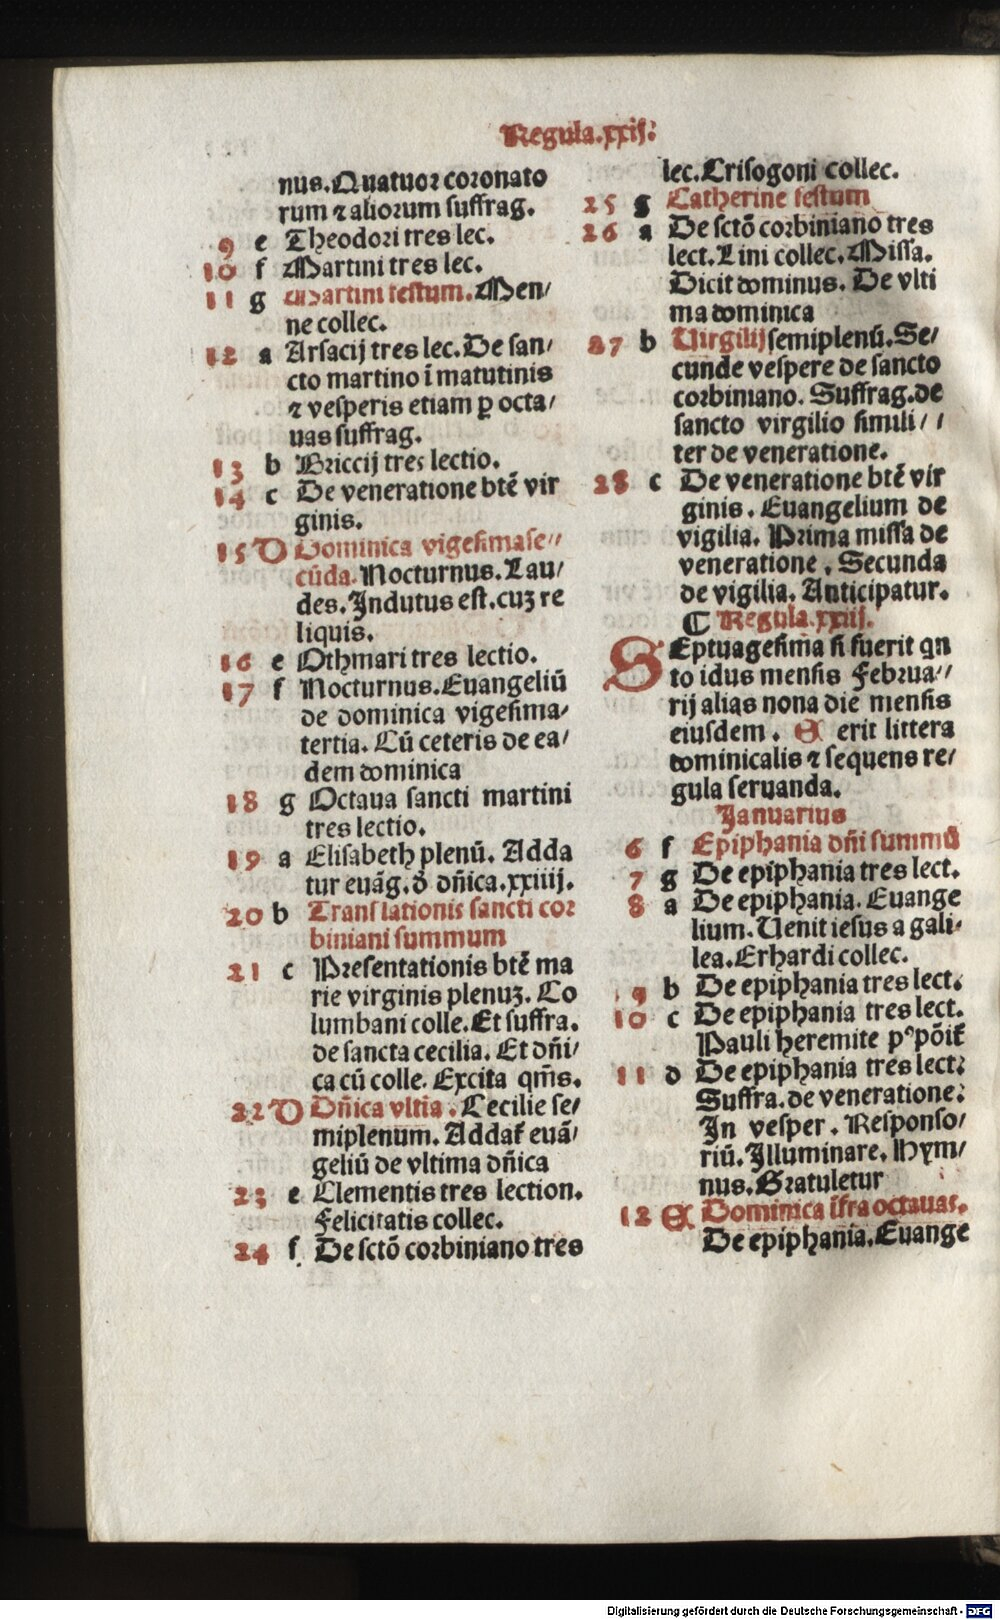 Regula.xxij:
nus.Quatuor coronato
rum ⁊ aliorum suffrag.
9 e Theodori tres lec.
10 f Martini tres lec.
11 g Martini festum.Men/
ne collec.
12 a Arsacij tres lec.De san/
cto martino ī matutinis
⁊ vesperis etiam ꝑ octa/
uas suffrag.
13 b Briccij tres lectio.
14 c De veneratione btē vir
ginis.
15 D Dominica vigesimase//
cūda.Nocturnus.Lau/
des.Indutus est.cuꝫ re
liquis.
16 e Othmari tres lectio.
17 f Nocturnus.Euangeliū
de dominica vigesima/
tertia. Cū ceteris de ea/
dem dominica
18 g Octaua sancti martini
tres lectio.
19 a Elisabeth plenū. Adda
tur euāg. dn̄ica.xxiiij.
20 b Translationis sancti cor
biniani summum
21 c Presentationis btē ma
rie virginis plenuꝫ. Co
lumbani colle.Et suffra.
de sancta cecilia. Et dn̄i/
ca cū colle. Excita qm̄s.
22 D Dn̄ica vltīa . Cecilie se/
miplenum. Addat̄ euā/
geliū de vltima dn̄ica
23 e Clementis tres lection.
Felicitatis collec.
24 f De sctō corbiniano tres
lec.Crisogoni collec.
25 g Catherine festum
26 a De sctō corbiniano tres
lect.Lini collec.Missa.
Dicit dominus. De vlti
ma dominica
27 b Virgilij semiplenū.Se/
cunde vespere de sancto
corbiniano. Suffrag.de
sancto virgilio simili//
ter de veneratione.
28 c De veneratione btē vir
ginis. Euangelium de
vigilia. Prima missa de
veneratione . Secunda
de vigilia. Anticipatur.
¶ Regula.xxiij.
SEptuagesima si fuerit qn
to idus mensis Februa//
rij alias nona die mensis
eiusdem . E erit littera
dominicalis ⁊ sequens re/
gula seruanda.
Januarius
6 f Epiphania dn̄i summū
7 g De epiphania tres lect.
8 a De epiphania. Euange
lium.Uenit iesus a gali-
lea.Erhardi collec.
9 b De epiphania tres lect.
10 c De epiphania tres lect.
Pauli heremite
11 d De epiphania tres lect:
Suffra.de veneratione:
In vesper . Responso/
riū.Illuminare. Hym/
nus.Gratuletur
12 E Dominica īfra octauas.
De epiphania.Euange
Digitalisierung gefördert durch die Deutsche Forschungsgemeinschaft - DFG